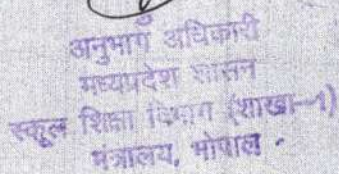 अनुभाग अधिकारी
मध्यप्रदेश शासन
स्कूल शिक्षा विभाग (शाखा-1)
मंत्रालय, भोपाल